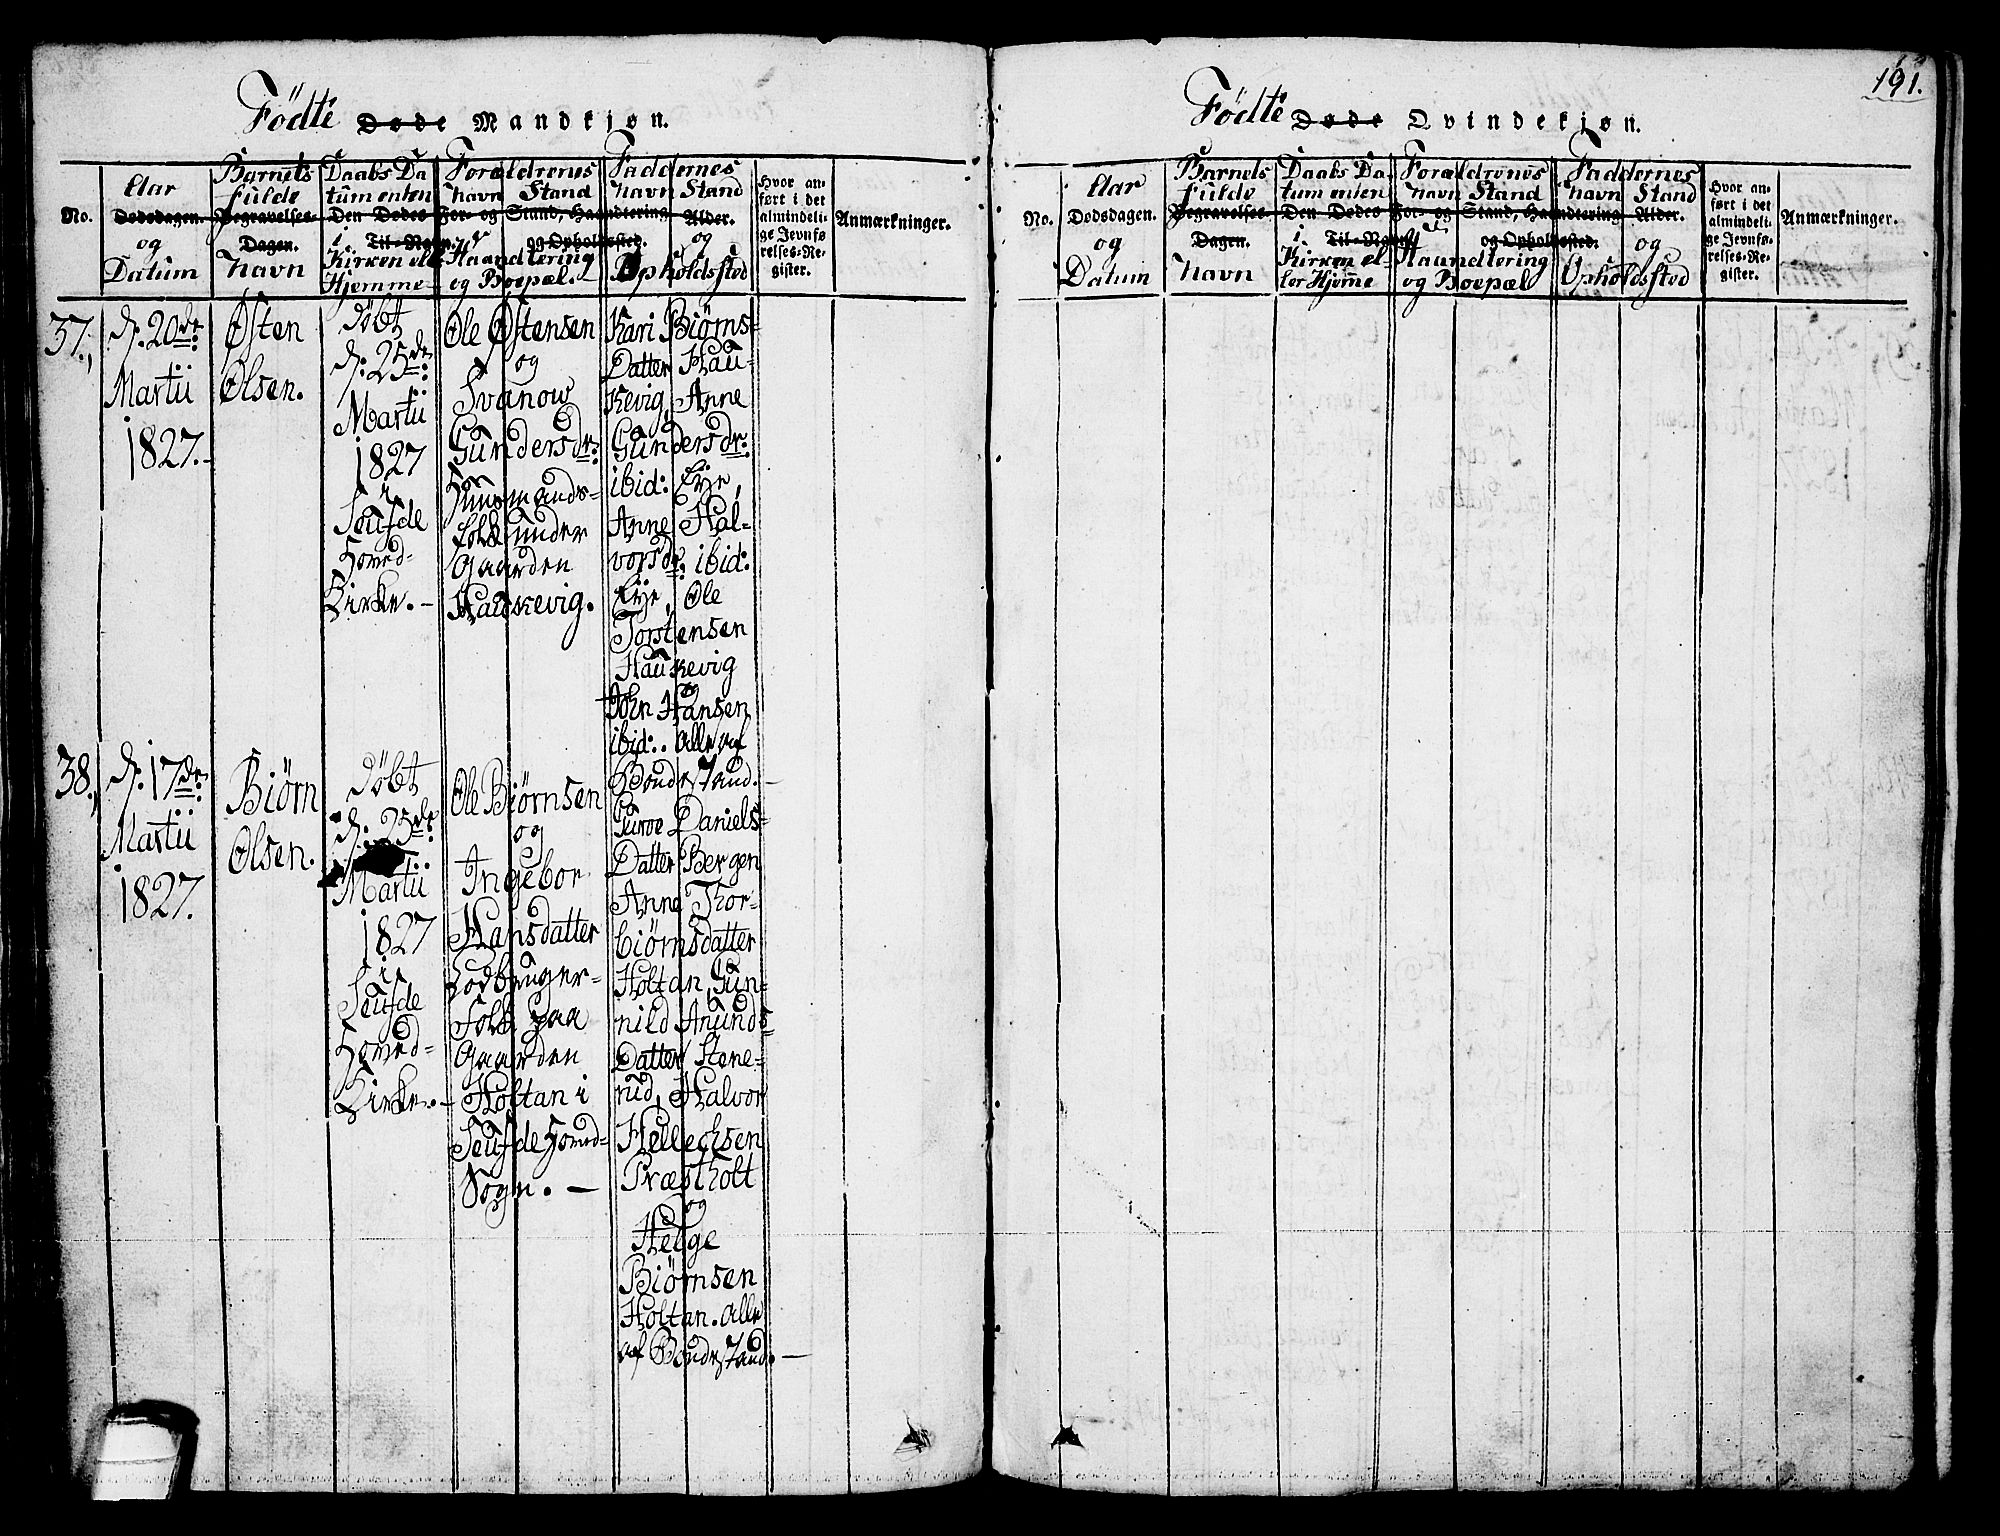 191.
Födte Døde Mandkjøn.
No.
Aar
Dødsdagen.
og
Datum
Barnets
fulde
Begravelses-
Dagen.
Navn
Daabs Da
tum enten
Den Dødes For- og
i
Til-Navn.
Kirken el-
Hjemme-
Forældrenes
Navn Stand
Stand, Haandtering
og Opholdssted.
Haandtering
og Boepæl.
Faddernes
Navn Stand
Alder.
og
Opholdssted
Hvor an-
ført i det
almindeli-
ge Jevnfø
relses-Re-
gister.
Anmærkninger.
37.,
d. 20de:
Martii
1827.-
Østen
Olsen.
Døbt
d. 25de:
Martii
1827
i
Seufde
Hoved-
Kirke.-
Ole Østensen
og
Svanow
Gundersdr:
Huusmands-
folk under
Gaarden
Haukevig.
Kari Biørns-
Datter Hau-
kevig, Anne
Gundersdr:
ibid: Eye,
Anne Hal-
vorsdr: ibid:
Eye, Ole
Torstensen
Haukevig
og
John Hansen
ibid:. Alle af
Bondestand.-
38.,
d. 17de:
Martii
1827.
Biørn
Olsen.
Døbt
d. 25de:
Martii
1827
i
Seufde
Hoved-
Kirke.-
Ole Biørnsen
og
Ingebor
Hansdatter
Lodbruger-
Folk paa
Gaarden
Holtan i
Seufde Hoved-
Sogn.-
Gunoe Daniels-
Datter Bergen
Anne Thor-
biørnsdatter
Holtan, Gun-
nild Anunds-
Datter Stene-
rud, Halvor
Hellechsen
Præstholt
og
Helge
Biørnsen
Holtan. Alle
af Bondestand.-
Födte Døde Qvindekjøn.
No.
Aar
Dødsdagen.
og
Datum
Barnets
fulde
Begravelses-
Dagen.
Navn
Daabs Da-
tum enten
Den Dødes For- og
i
Til-Navn
Kirken el-
ler Hjemme
Forældrenes
Navn Stand
Stand, Haandtering
og Opholdssted.
Haandtering
og Boepæl
Faddernes
Navn Stand
Alder.
og
Opholdssted
Hvor an-
ført i det
almindeli-
ge Jevnfø-
relses-Re-
gister.
Anmærkninger.